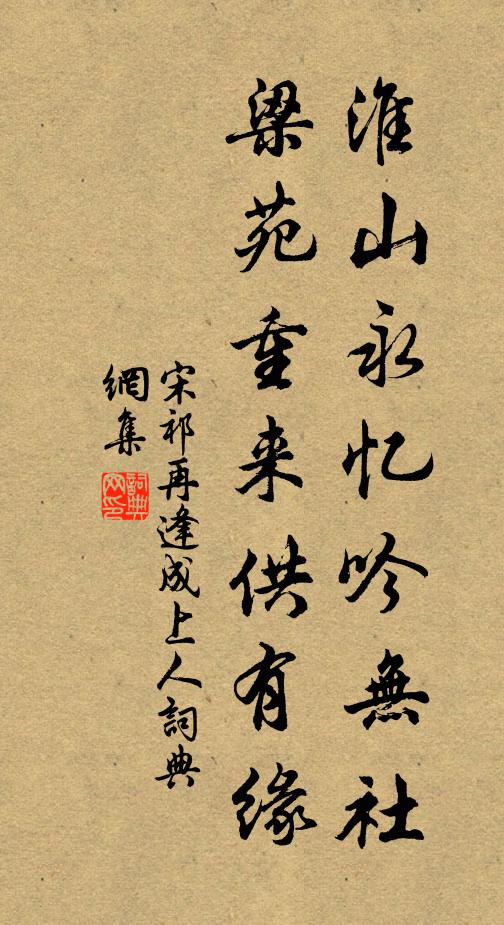 淮山永忆吟無社
梁苑重来供有缘
宋祁再逢成上人詞典
網集
詞典网印